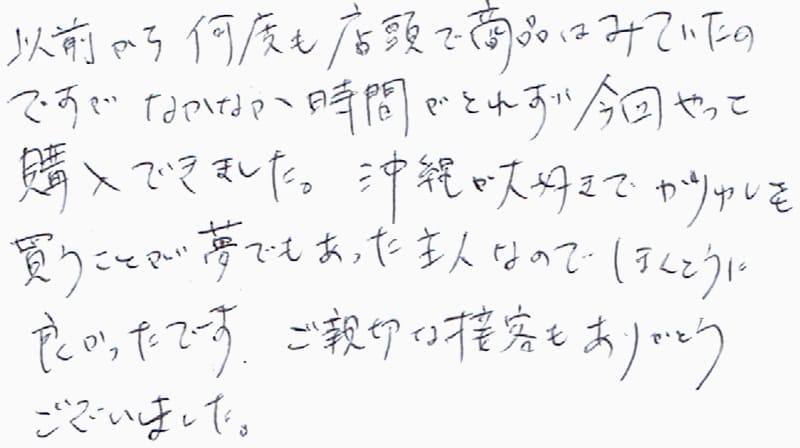 以前から何度も店頭で商品はみていたの
ですがなかなか時間がとれず今回やっと
購入できました。沖縄が大好きでかりゆしを
買うことが夢でもあった主人なのでほんとうに
良かったです.ご親切な接客もありがとう
ございました。